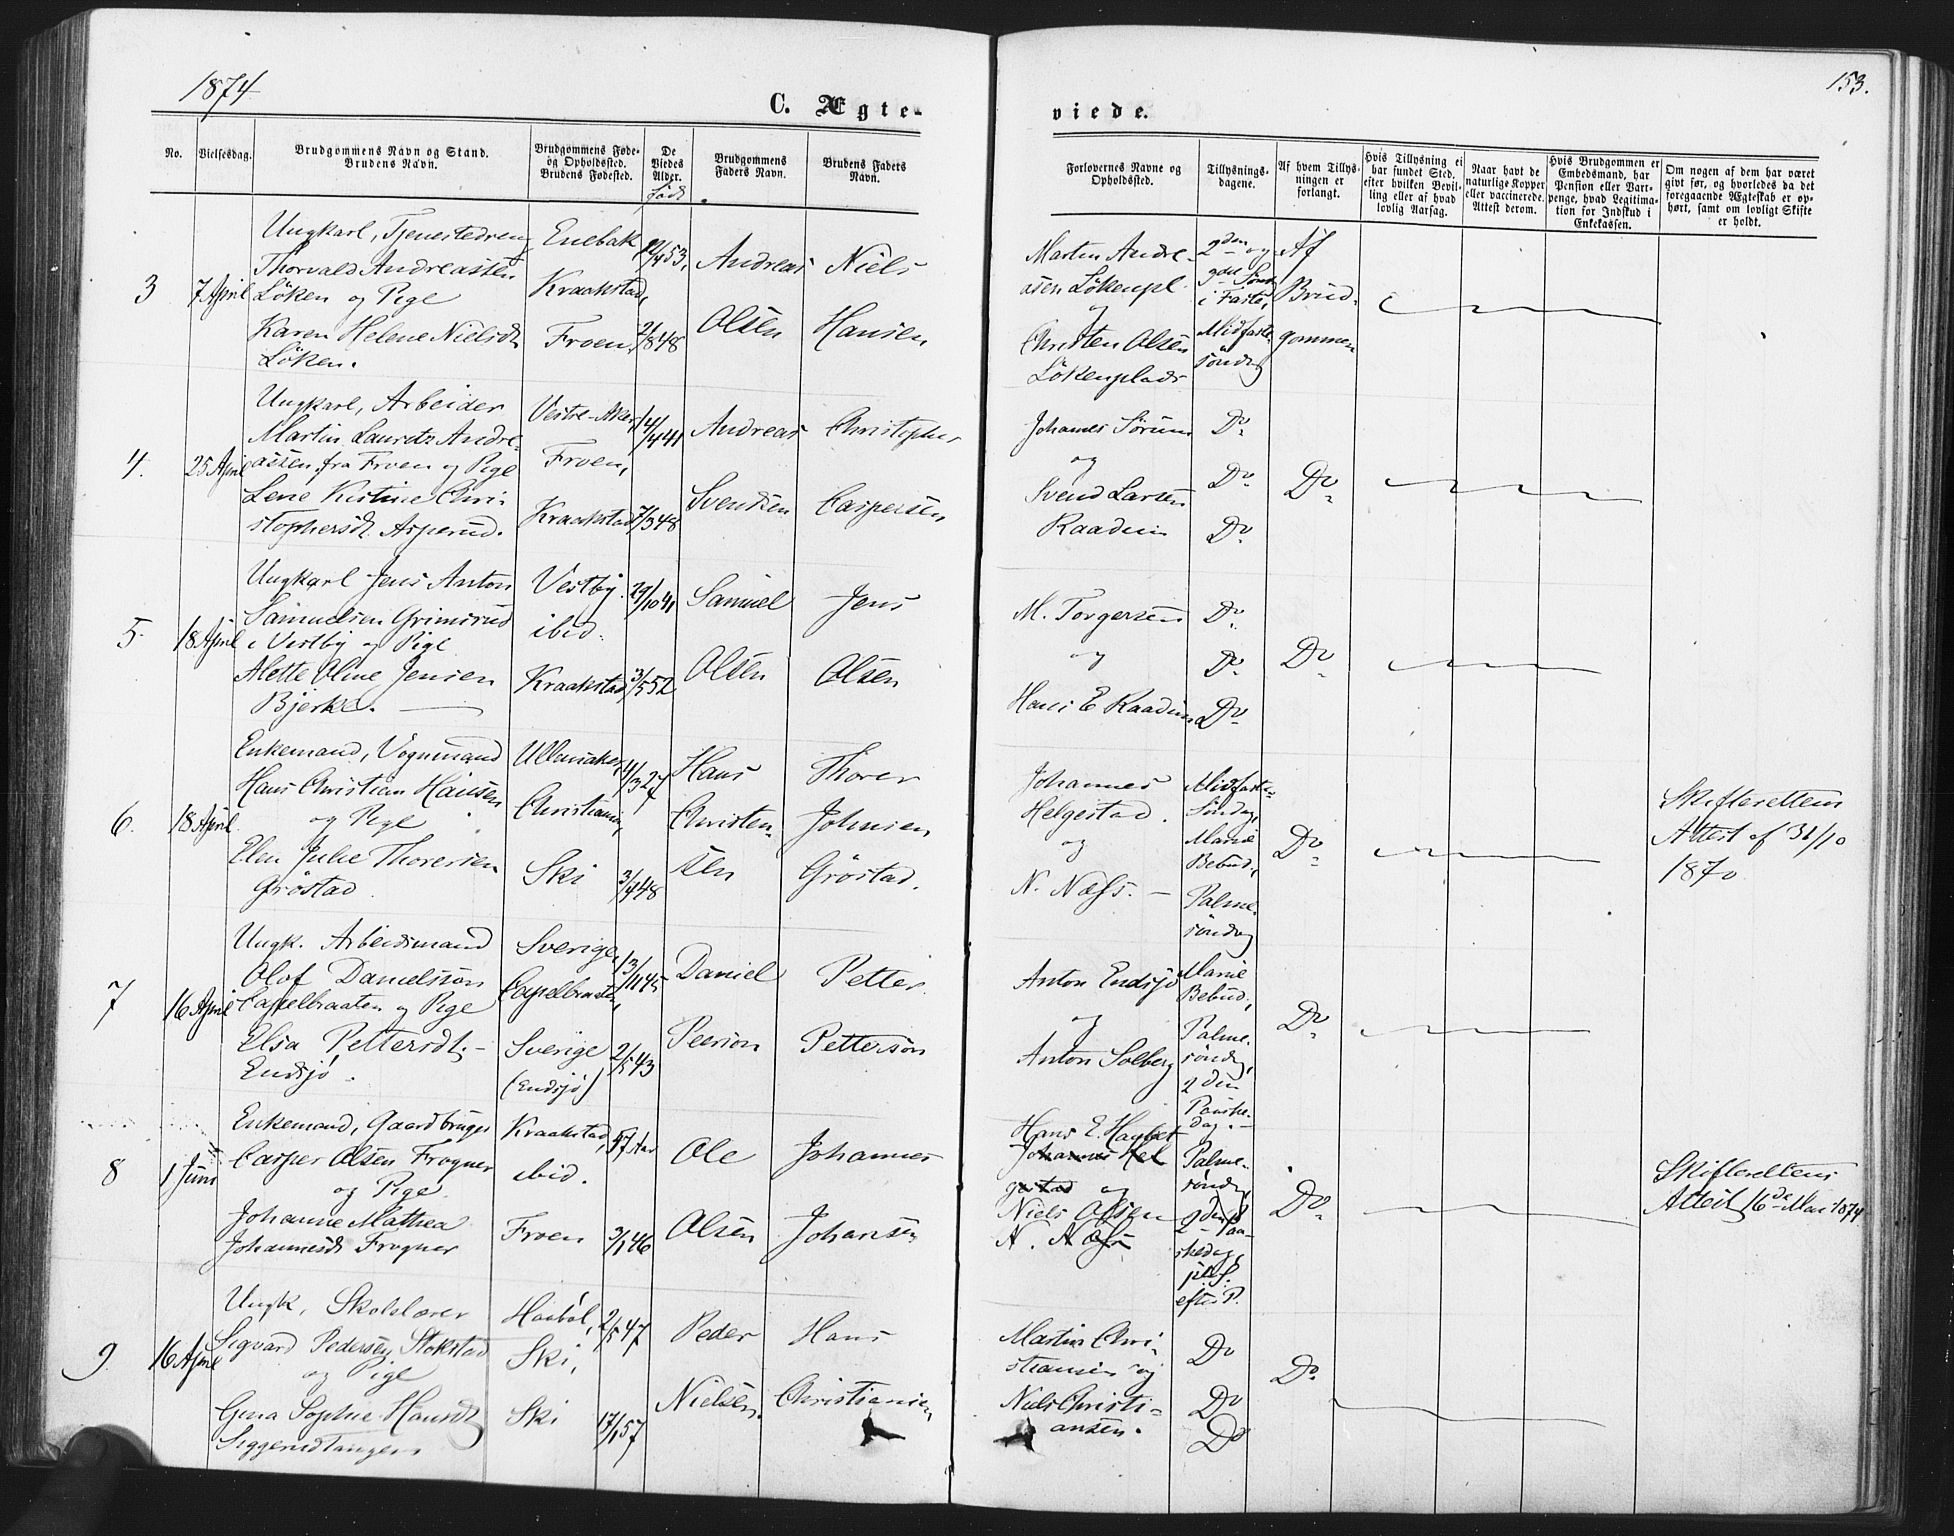 1874
153.
C. Ægte-
viede.
No.
Vielsesdag.
Brudgommens Navn og Stand.
Brudens Navn.
Brudgommens Føde-
og Opholdssted.
Brudens Fødested.
De
Viedes
Alder.
født.
Brudgommens
Faders Navn.
Brudens Faders
Navn.
Forlovernes Navne og
Opholdssted.
Tillysnings-
dagene.
Af hvem Tillys-
ningen er
forlangt.
Hvis Tillysning ei
har fundet Sted,
efter hvilken Bevil-
ling eller af hvad
lovlig Aarsag.
Naar havt de
naturlige Kopper
eller vaccinerede.
Attest derom.
Hvis Brudgommen er
Embedsmand, har
Pension eller Vart-
penge, hvad Legitima-
tion for Indskud i
Enkekassen.
Om nogen af dem har været
gift før, og hvorledes da det
foregaaende Ægteskab er op-
hørt, samt om lovligt Skifte
er holdt.
3
7 April
Ungkarl, Tjenestedreng
Thorvald Andreassen
Löken og Pige
Karen Helene Nielsdt
Löken.
Enebak
Kraakstad,
Froen,
12/4 53,
2/8 48
Andreas
Olsen
Niels
Hansen
Martin Andre-
asen Lökenpl.
og
Christen Olsen
Lökenplads
2den og
3die Sönd.
i Faste,
Midfaste-
söndag
Af
Brud-
gommen
4.
25 April
Ungkarl, Arbeider
Martin Lauretz Andre-
assen fra Froen og Pige
Lene Kistine Chri-
stophersdt Asperud.
Vestre-Aker,
Froen,
Kraakstad
14/4 41
7/3 48
Andreas
Svendsen
Christopher
Caspersen
Johannes Sörum
og
Svend Larsen
Raadim
Do
Do
Do
Do
5.
18 April
Ungkarl Jens Anton
Samuelsen Grimsrud
i Vestby og Pige
Alette Oline Jensen
Bjerke.
Vestby.
ibid.
Kraakstad
29/10 41
3/5 52
Samuel
Olsen
Jens
Olsen
M. Torgersen
og
Hans E Raadim
Do
Do
Do
Do
6.
18 April
Enkemand, Vognmand
Hans Christian Hansen
og Pige
Elen Julie Thoresen
Gröstad.
Ullensaker,
Christiania,
Ski
4/3 27
3/4 48
Hans
Christen-
sen
Thorer
Johnsen
Gröstad.
Johannes
Helgestad.
og
N. Næss.
Midfaste-
Söndag,
Marie
Bebud.,
Palme-
söndag
Do
Skifterettens
Attest af 31/10
1870
7
16 April
Ungk. Arbeidsmand
Olof Danielsson
Capelbraaten og Pige
Elsa Pettersdt.
Endsjö.
Sverige,
Capelbraaten,
Sverige
(Endsjö)
13/11 45
2/5 43
Daniel
Peerson
Petter
Petterson
Anton Endsjö
og
Anton Solberg
Marie
Bebud.,
Palme-
söndag,
2den
Paaske-
dag.
Do
8
1 Juni
Enkemand, Gaardbruger
Casper Olsen Frogner
og Pige
Johanne Mathea
Johannesdt Frogner
Kraakstad,
ibid.
Froen
57 Aar
3/1 46
Ole
Olsen
Johannes
Johansen
Hans E. Haubet
Johannes Hel
gestad og
Niels Olsen
N. Næss
Palme-
söndag,
2den Paa-
skedag,
1ste S.
efter P.
Do
Skifterettens
Attest 16de Mai 1874
9.
16 April
Ungk, Skolelærer
Sigvard Pedersen Stokstad
og Pige
Gina Sophie Hansdt
Siggerudtangen
Haaböl,
Ski,
Ski
2/5 47
17/1 57
Peder
Nielsen
Hans
Christiansen
Martin Chri-
stiansen og
Niels Christi-
ansen.
Do
Do
Do
Do